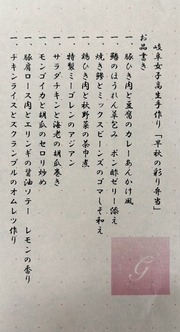 岐阜女子高生手作り「早秋の彩り弁当」
お品書き
一、豚ひき肉と豆腐のカレーあんかけ風
一　鰆のほうれん草包み　ポン酢ゼリー添え
一　焼き鯵とミックスビーンズのゴマしそ和え
一　鶏ひき肉と秋野菜の茶巾煮
一　特製ミーゴレンのアジアン
サラダチキンと海老の胡瓜巻き
一　モンゴイカと胡瓜のセロリ炒め
一　豚肩ロース肉とエリンギの醤油ソテー　レモンの香り
チキンライスとスクランブルのオムレツ作り
G